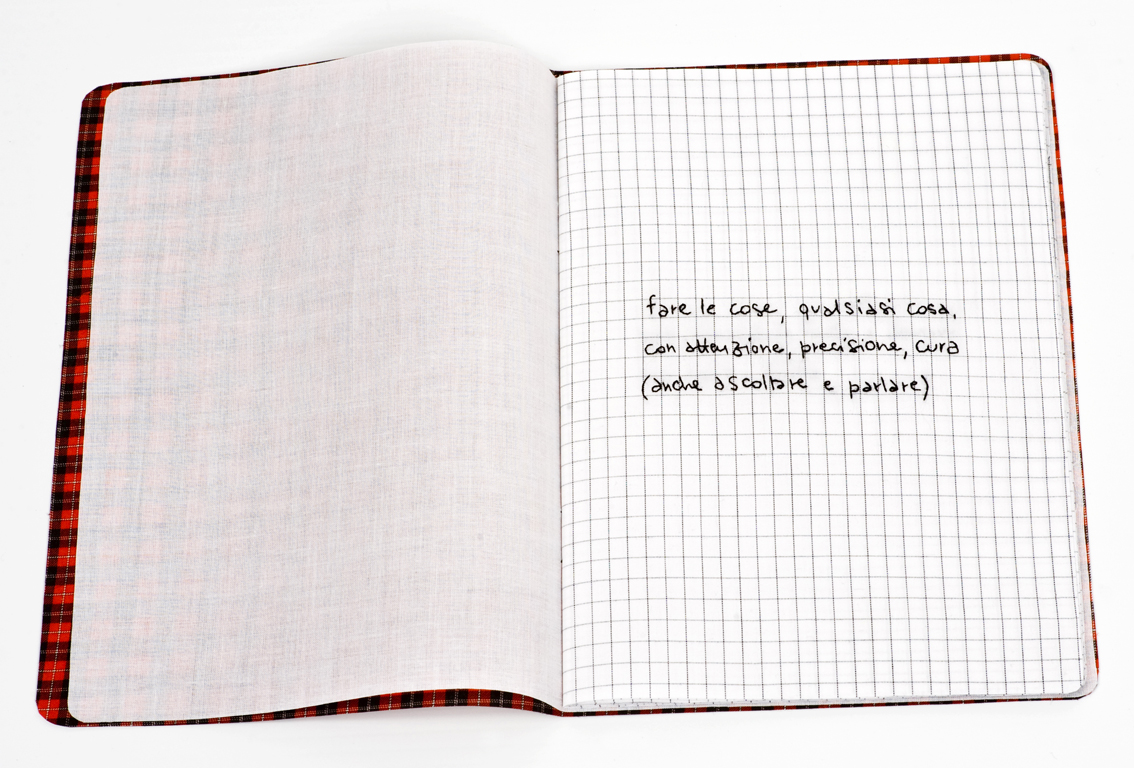 fare le cose, qualsiasi cosa,
con attenzione, precisione, cura
(anche ascoltare e parlare)